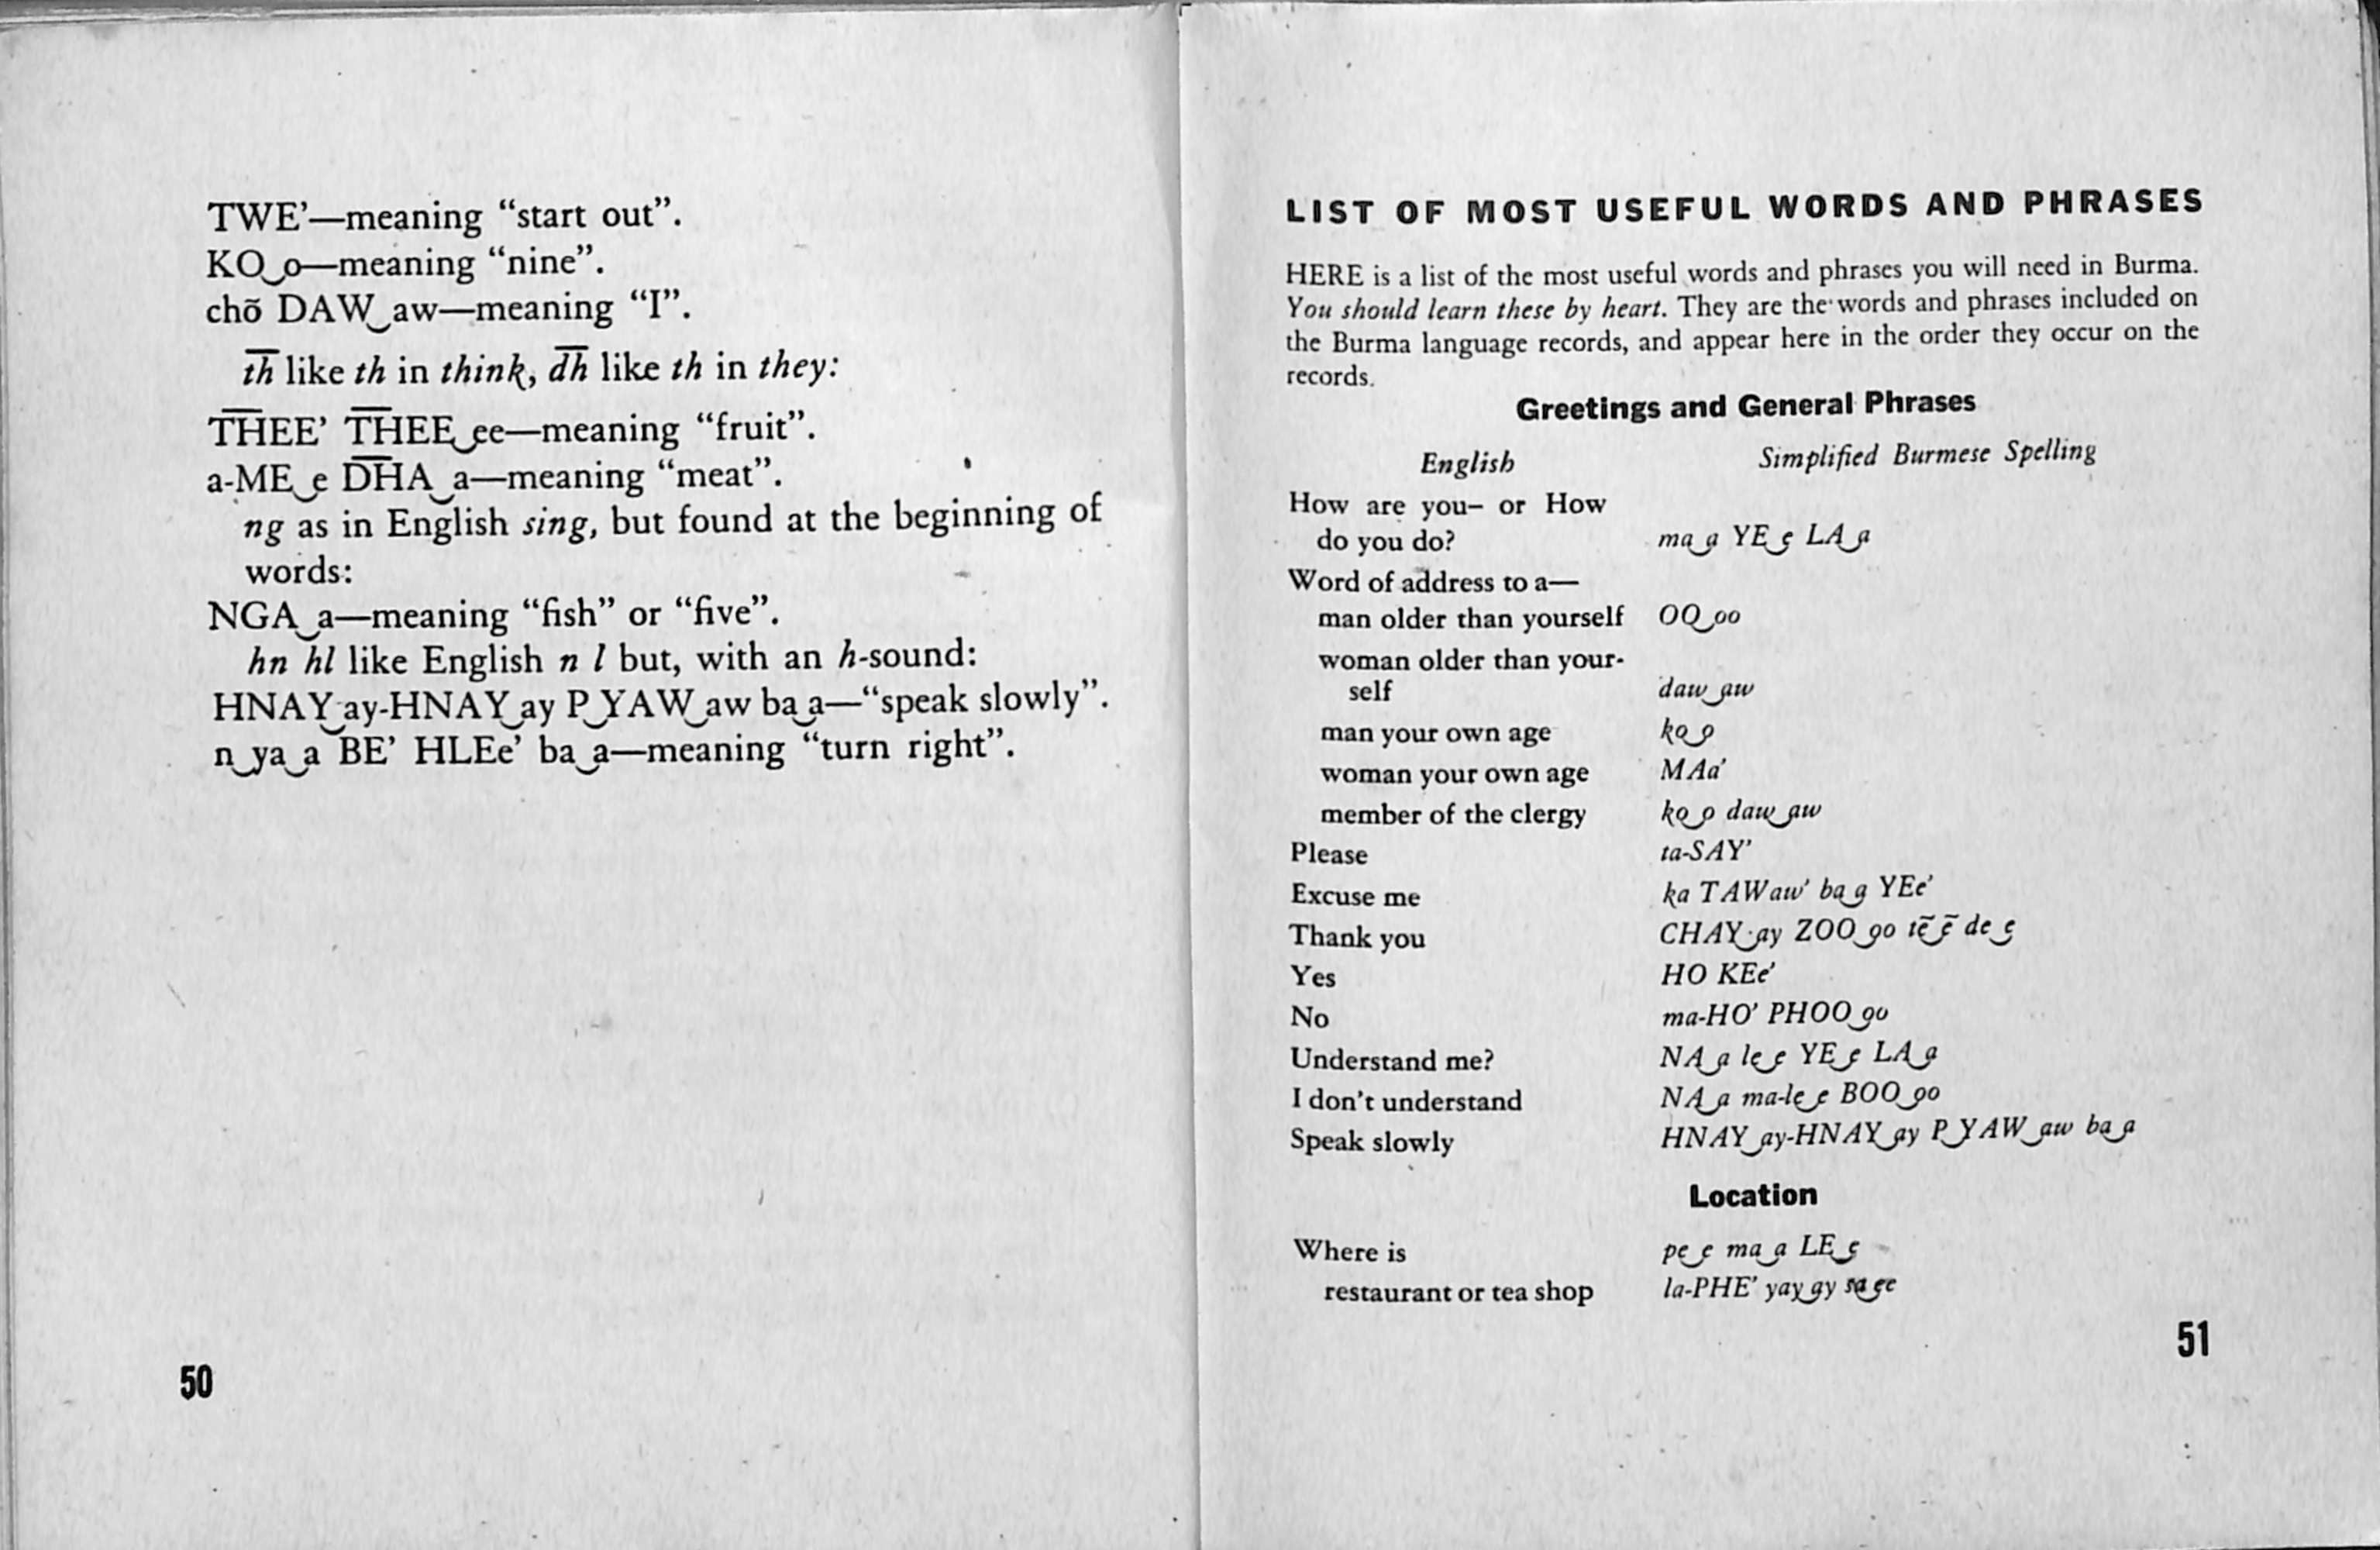 TWE’—meaning “start out”.
KO‿o—meaning “nine”.
chõ DAW‿aw—meaning “I”.
t͞h like th in think, d͞h like th in they:
T͞HEE’ T͞HEE‿ee—meaning “fruit”.
a-ME‿e D͞HA‿a—meaning “meat”.
ng as in English sing, but found at the beginning of
words:
NGA‿a—meaning “fish” or “five”.
hn hl like English n l but, with an h-sound:
HNAY‿ay-HNAY‿ay P‿YAW‿aw ba‿a—“speak slowly”.
n‿ya‿a BE’ HLEe’ ba‿a—meaning “turn right”.
50
LIST OF MOST USEFUL WORDS AND PHRASES
HERE is a list of the most useful words and phrases you will need in Burma.
You should learn these by heart. They are the words and phrases included on
the Burma language records, and appear here in the order they occur on the
records.
Greetings and General Phrases
English Simplified Burmese Spelling
How are you– or How
do you do? ma‿a YE‿e LA‿a
Word of address to a—
man older than yourself OO‿oo
woman older than your-
self daw‿aw
man your own age ko‿o
woman your own age MAa’
member of the clergy ko‿o daw‿aw
Please ta-SAY’
Excuse me ka TAWaw’ ba‿a YEe’
Thank you CHAY‿ay ZOO‿oo tẽ‿ẽ de‿e
Yes HO KEe’
No ma-HO’ PHOO‿oo
Understand me? NA‿a le‿e YE‿e LA‿a
I don’t understand NA‿a ma-le‿e BOO‿oo
Speak slowly HNAY‿ay-HNAY‿ay P‿YAW‿aw ba‿a
Location
Where is pe‿e ma‿a LE‿e
restaurant or tea shop la-PHE’ yay‿ay
51